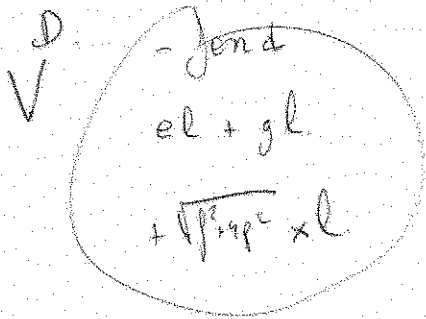 V^D
- Jond
el + gl
+ √p²+4p² × l